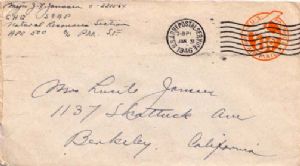 Major J. Janssen O-221[?]
GHQ SCAP
Natural Resources Section
APO 500 % PM. SF
U.S. ARMY POSTAL SERVICE
JAN 31
1946
Mrs Lucite Janssen
1137 Shattuck Ave
Berkeley, California